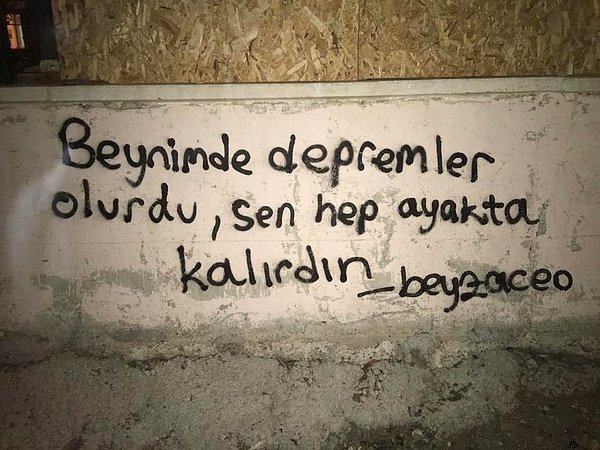 Beynimde depremler
olurdu, sen hep ayakta
kalırdın _beyzaceo